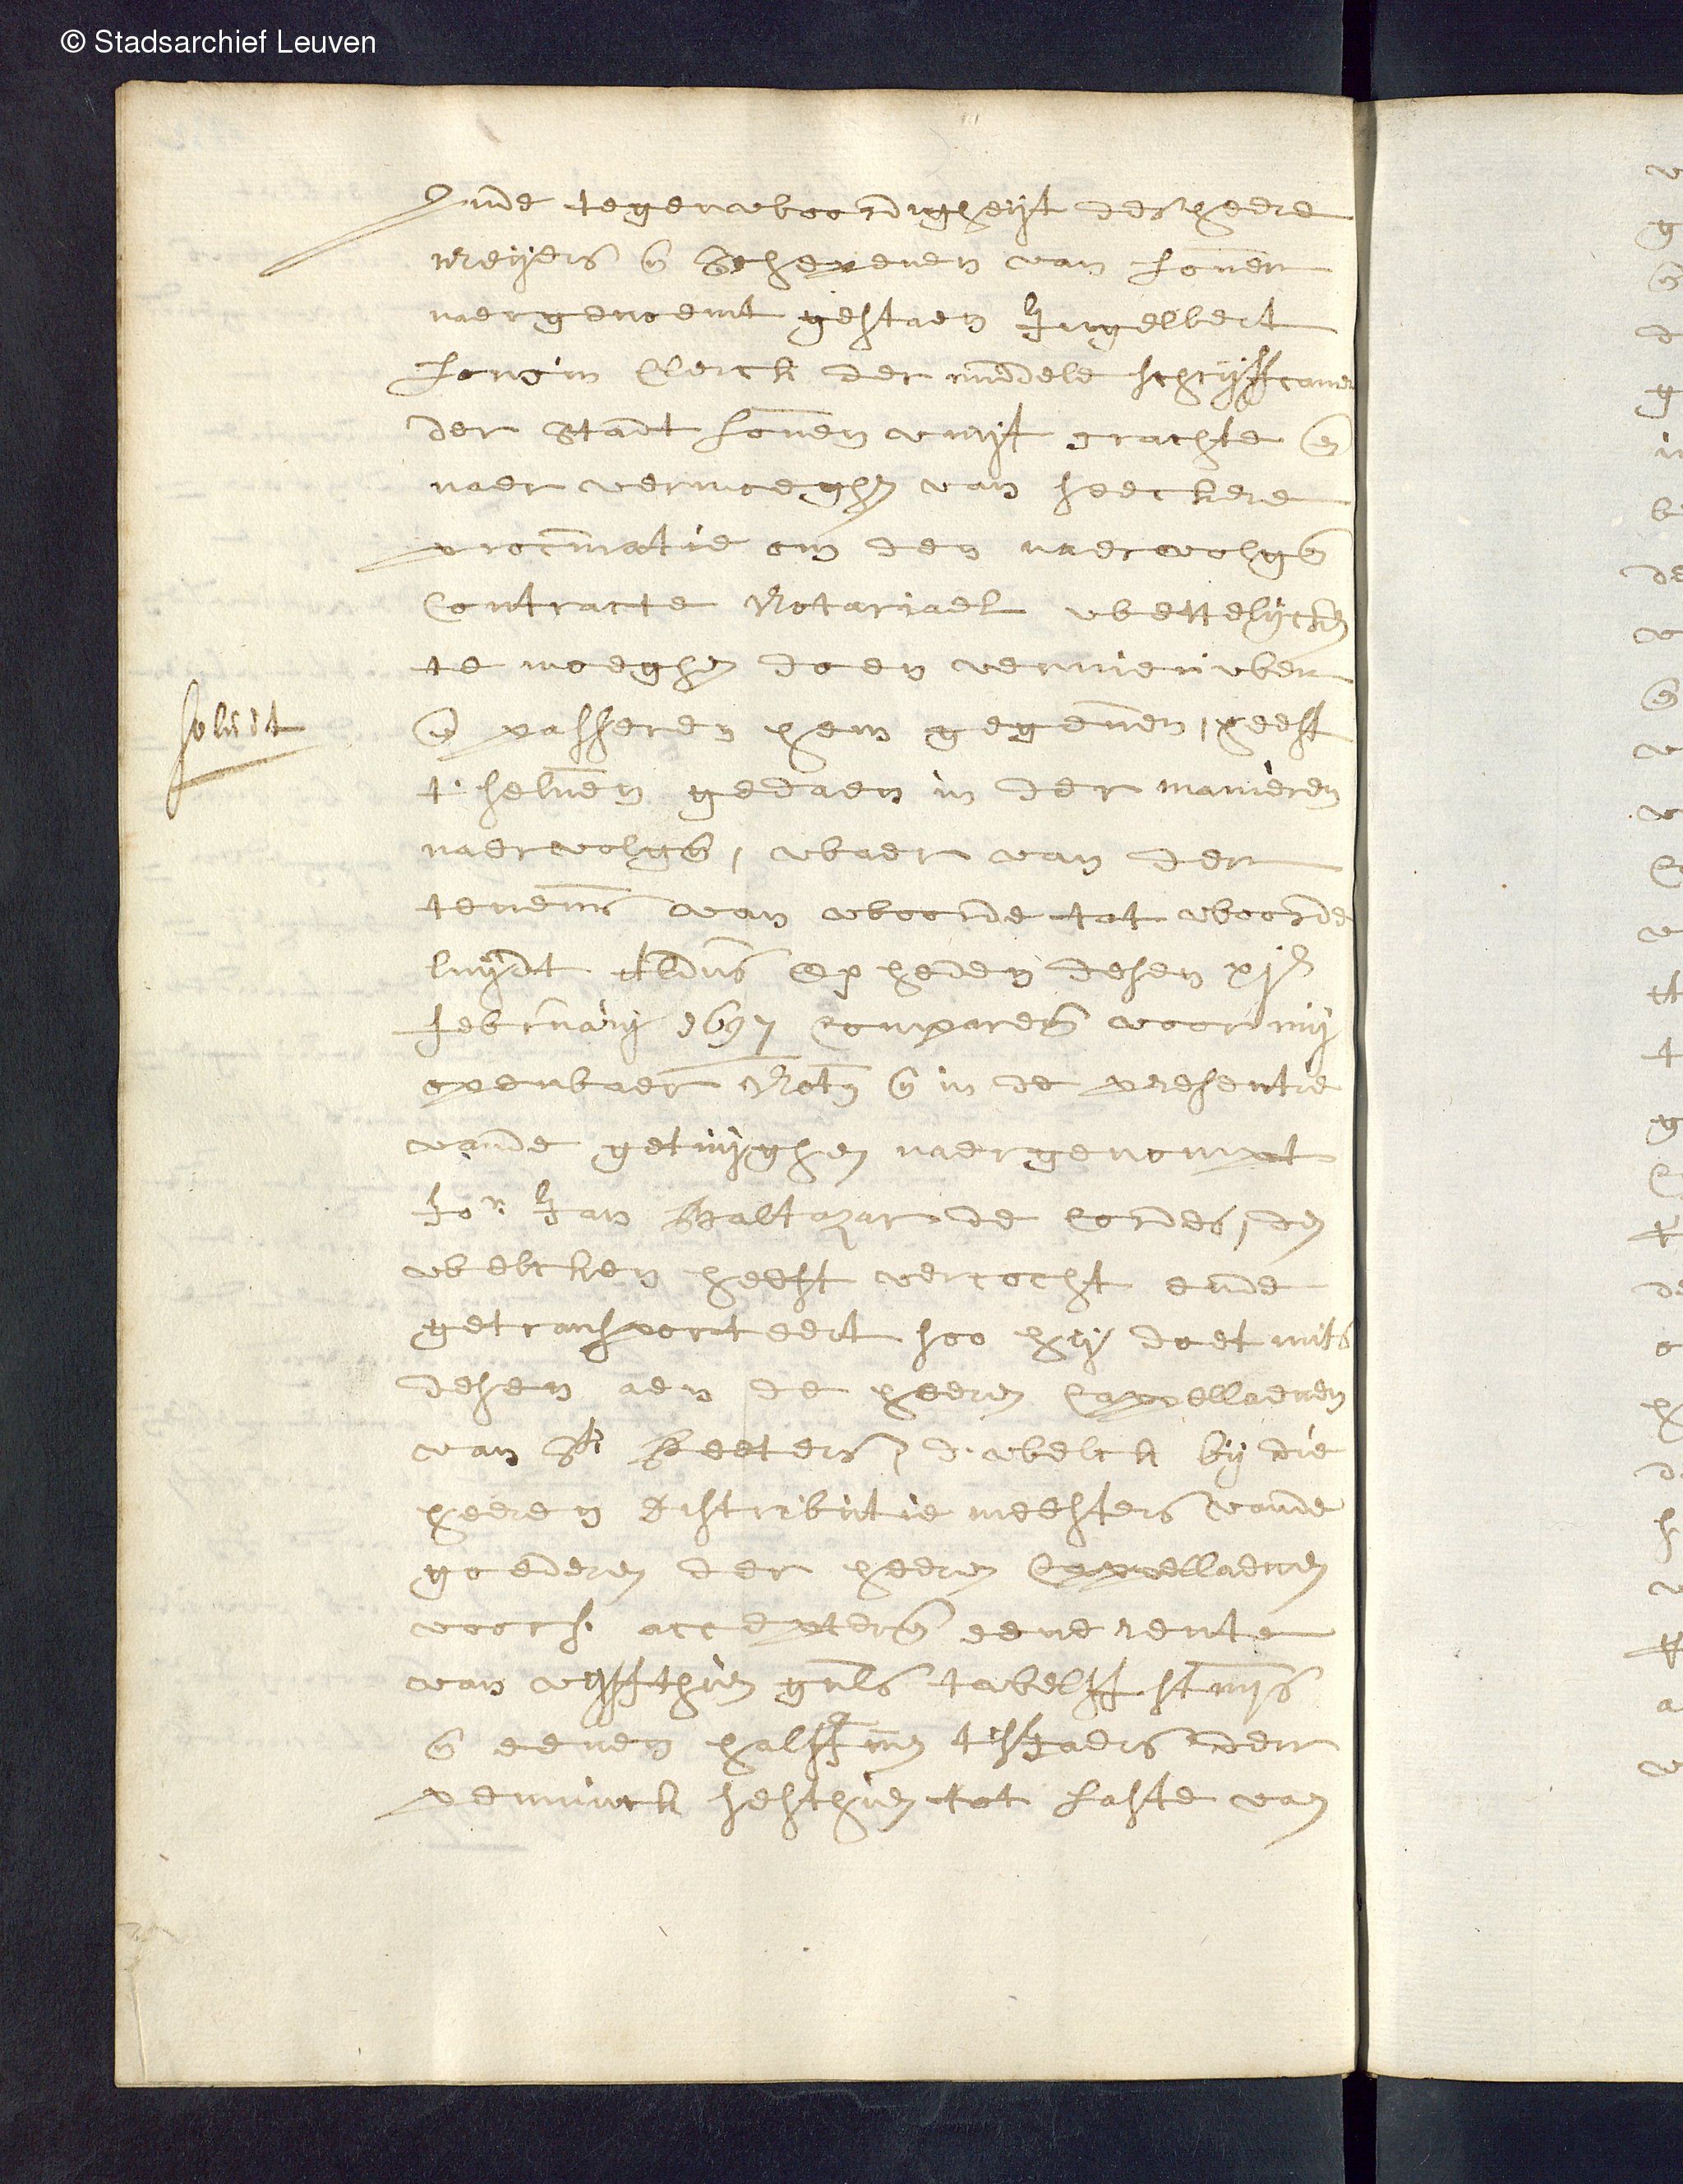 © Stadsarchief Leuven
Inde tegenwboordigheijt des heere
meijers en Schepenen van Loven
naergenoemt gestaen Ingelbert
clerck der middele schrijffcamer
der Stadt Loven vuijt crachte en
naer vermoeghen van seeckere
procuratie om den naervolgen
Contracte Notariael wbettelijcken
te moeghen doen vernieuwben
solvit
en passeren hem gegeven, heeft
t'selven gedaen in der manieren
naervolgen, wbaer van den
teneur van wboorde tot wboorde
luijdt aldus Op heden desen xje
februarij 1697 Comparen voor mij
openbaer Nots en in de presentie
vande getuijghen naergenompt
Jor Jan Baltazar de Cordes, den
wbelcken heeft vercocht ende
getransporteert soo hij doet mits
desen aen de heeren Cappellaenen
van St Peeters, d'wbelck bij die
heeren distributie meesters vande
goederen der heeren Cappellaenen
voors. accepteren eene rente
van vijffthien guls twbelff stuijvers
en eenen halffven tsiaers den
penninck sesthien tot laste van